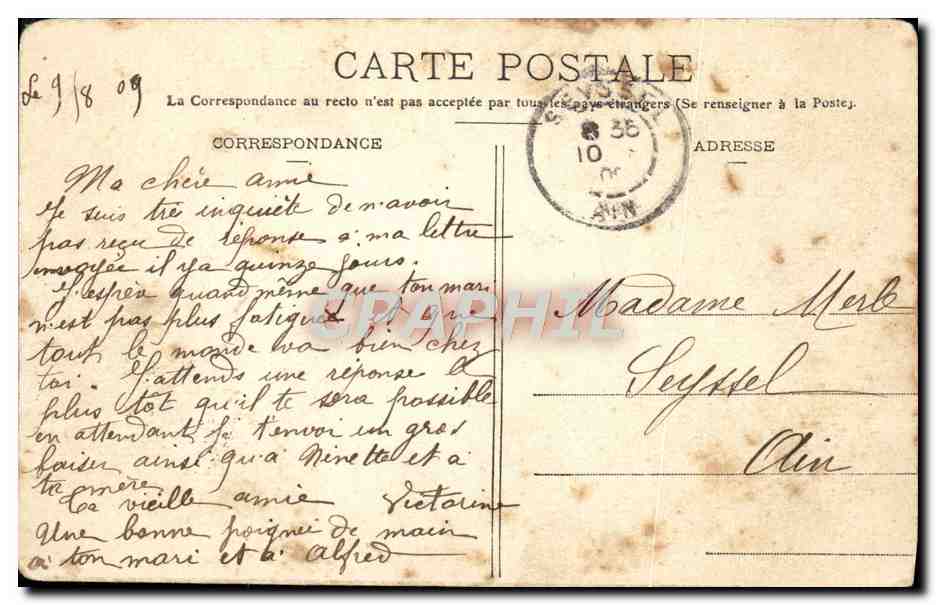 CARTE POSTALE
Le 9/8 09
La Correspondance au recto n'est pas acceptée par tous les pays étrangers (Se renseigner à la Poste).
CORRESPONDANCE
Ma chère amie
Je suis très inquiète de n'avoir
pas reçu de réponse à ma lettre
envoyée il y a quinze jours.
J'espère quand même que ton mari
n'est pas plus fatigué et que
tout le monde va bien chez
toi. J'attends une réponse le
plus tôt qu'il te sera possible
en attendant je t'envoi un gros
baiser ainsi qu'à Ninette et à
ta mère
Ta vieille amie Victorine
Une bonne poignée de main
à ton mari et à Alfred
SEYSSEL
8 35
10
AIN
ADRESSE
Madame Merle
Seyssel
Ain
CPAPHIL